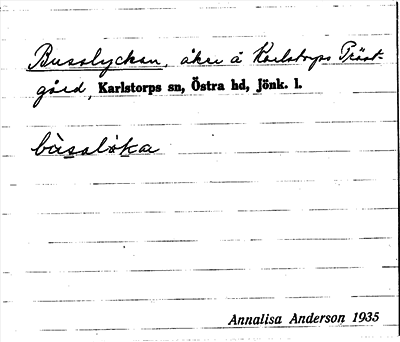 Bussalyckan, åker å Karlstorps Präst-
gård, Karlstorps sn, Östra hd, Jönk. l.
Annalisa Anderson 1935